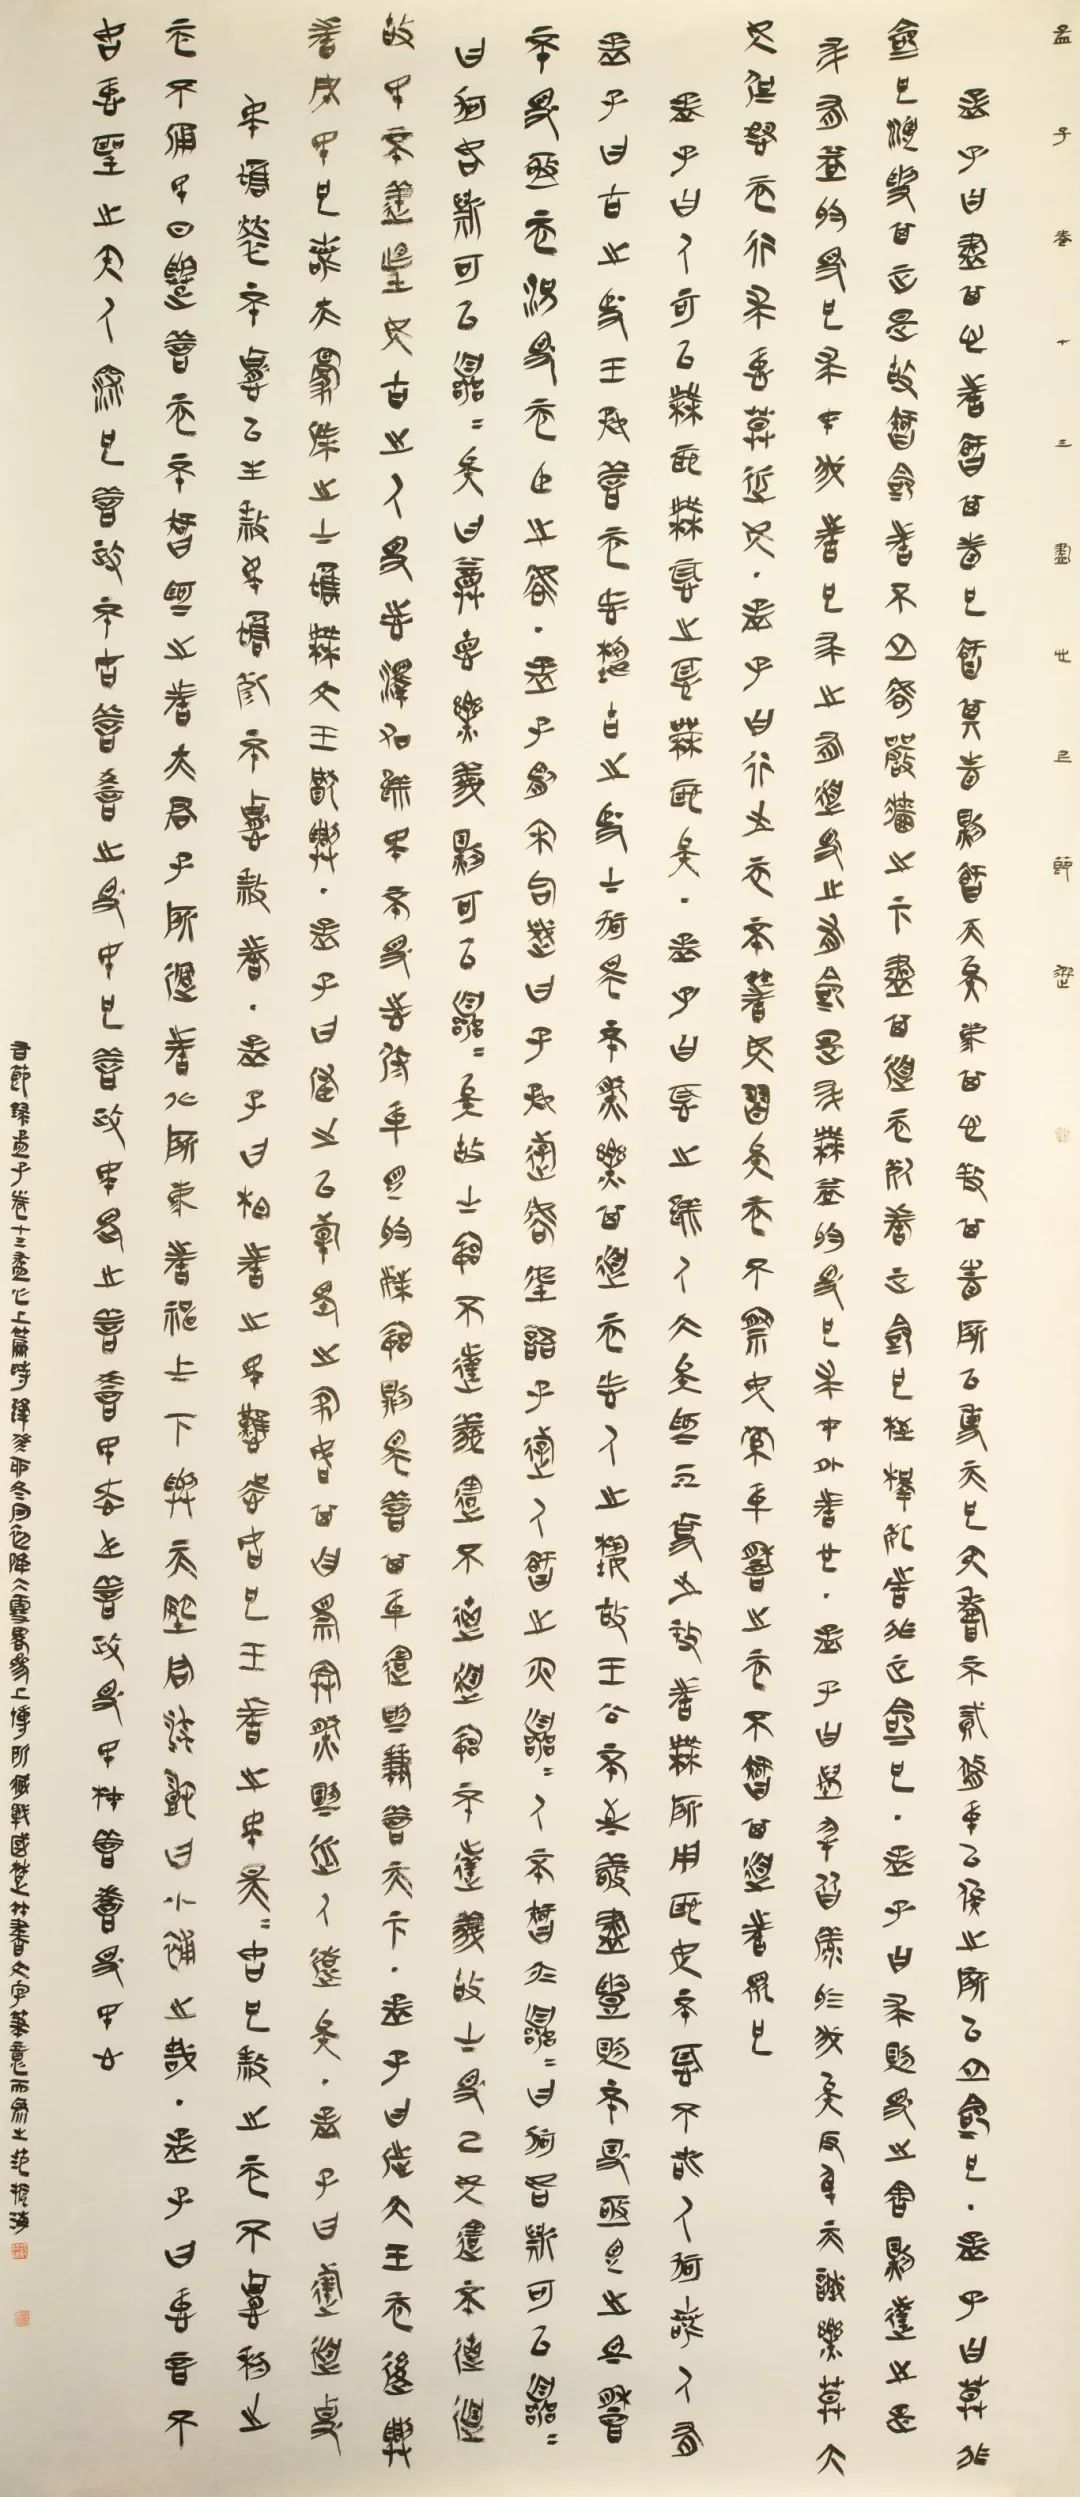 孟子卷十三盡心上節選
孟子曰盡其心者知其性也知其性則知天矣存其心養其性所以事天也夭壽不貳修身以俟之所以立命也孟子曰莫非
命也順受其正是故知命者不立乎巖牆之下盡其道而死者正命也桎梏死者非正命也孟子曰求則得之舍則失之是
求有益於得也求在我者也求之有道得之有命是求無益於得也求在外者也孟子曰萬物皆備於我矣反身而誠樂莫大
焉強恕而行求仁莫近焉孟子曰行之而不著焉習矣而不察焉終身由之而不知其道者眾也
孟子曰人不可以無恥無恥之恥無恥矣孟子曰恥之於人大矣為機變之巧者無所用恥焉不恥不若人何若人有
孟子曰古之賢王好善而忘勢古之賢士何獨不然樂其道而忘人之勢故王公不致敬盡禮則不得亟見之見且猶
不得亟而況得而臣之乎孟子謂宋句踐曰子好遊乎吾語子遊人知之亦囂=人不知亦囂=曰何如斯可以囂=
曰何如斯可以囂=矣曰尊德樂義則可以囂=矣故士窮不失義達不離道窮不失義故士得己焉達不離道
故民不失望焉古之人得志澤加於民不得志修身見於世窮則獨善其身達則兼善天下孟子曰待文王而後興
者凡民也若夫豪傑之士雖無文王猶興孟子曰附之以韓魏之家如其自視欿然則過人遠矣孟子曰以佚道使
民雖勞不怨以生道殺民雖死不怨殺者孟子曰霸者之民驩虞如也王者之民皞=如也殺之而不怨利之
而不庸民日遷善而不知為之者夫君子所過者化所存者神上下與天地同流豈曰小補之哉孟子曰仁言不
如仁聲之入人深也善政不如善教之得民也善政民畏之善教民愛之善政得民財善教得民心
右節錄孟子卷十三盡心上篇時維癸卯冬月初降大雪參上博所藏戰國楚竹書文字筆意而為之范振海